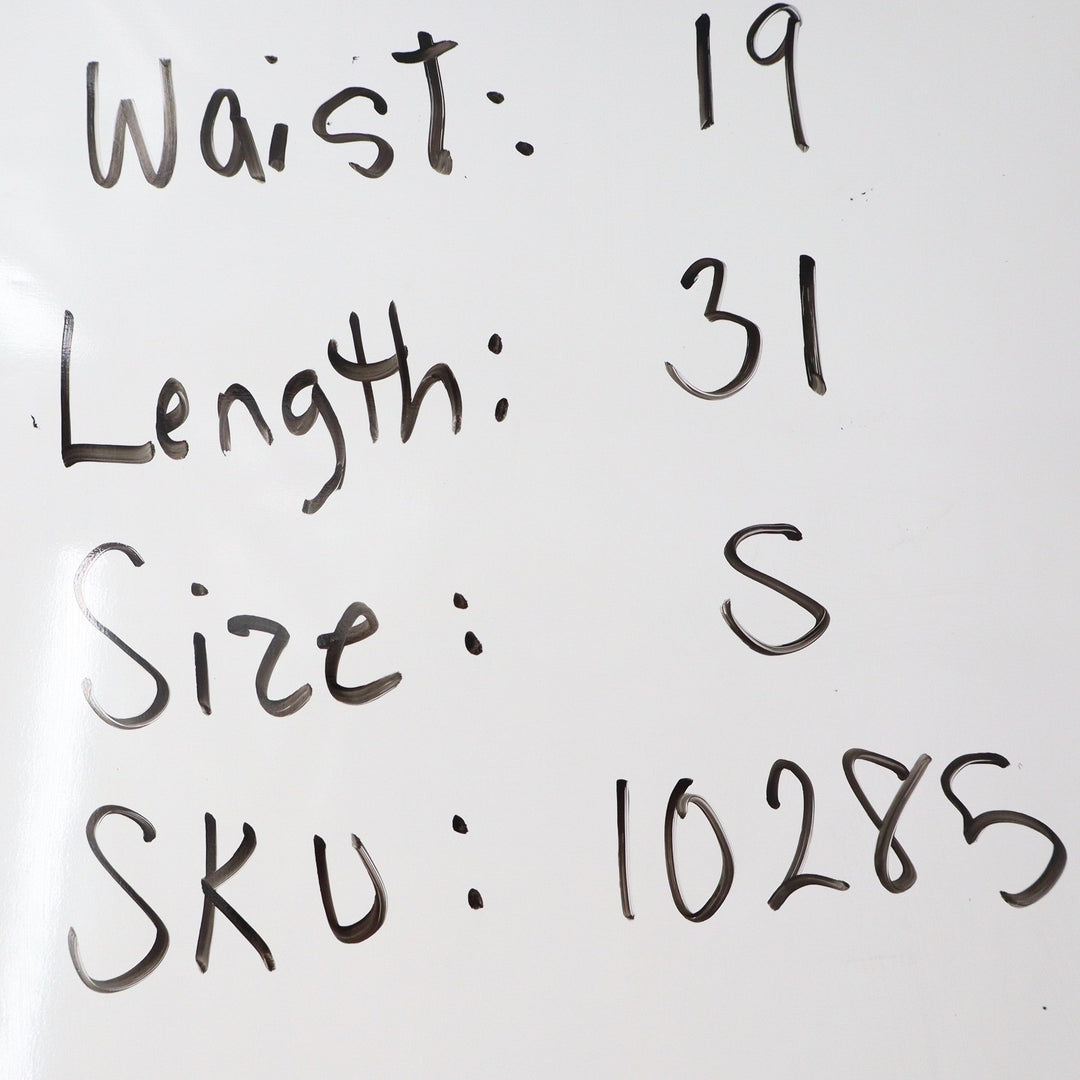 Waist: 19
Length: 31
Size: S
SKU: 10285